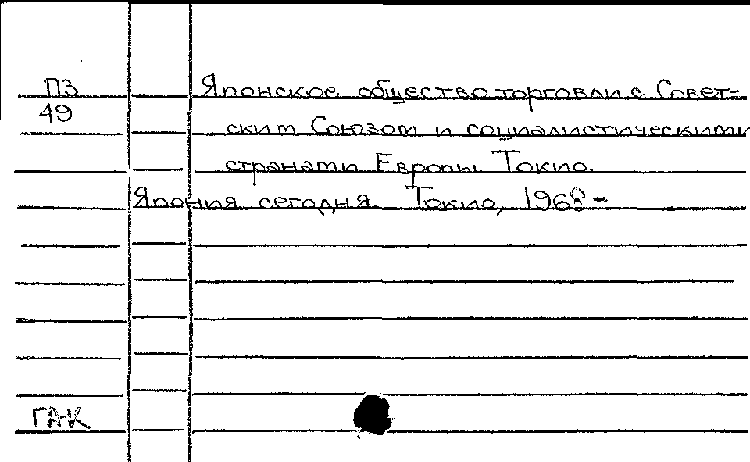 ПЗ
49
Японское общество торговли с Совет-
ским Союзом и социалистическими
странами Европы. Токио.
Япония сегодня. Токио, 196
ГАК